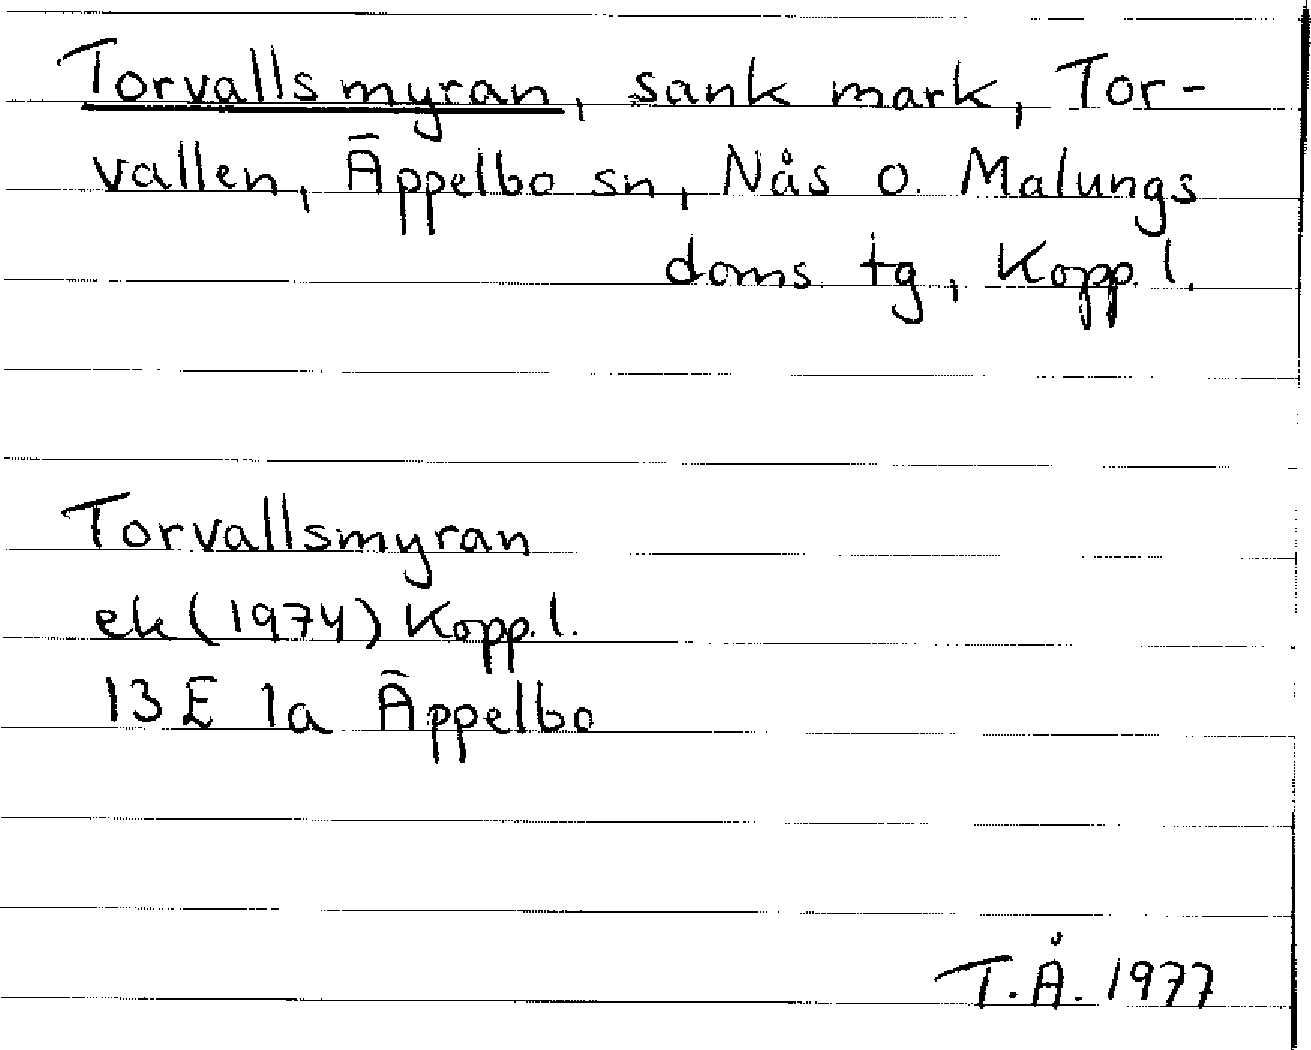 Torvallsmyran, sank mark, Tor-
vallen, Äppelbo sn, Nås o. Malungs
doms. tg, Kopp. l.
Torvallsmyran
ek (1974) Kopp. l.
13 E 1a Äppelbo
T.Å. 1977